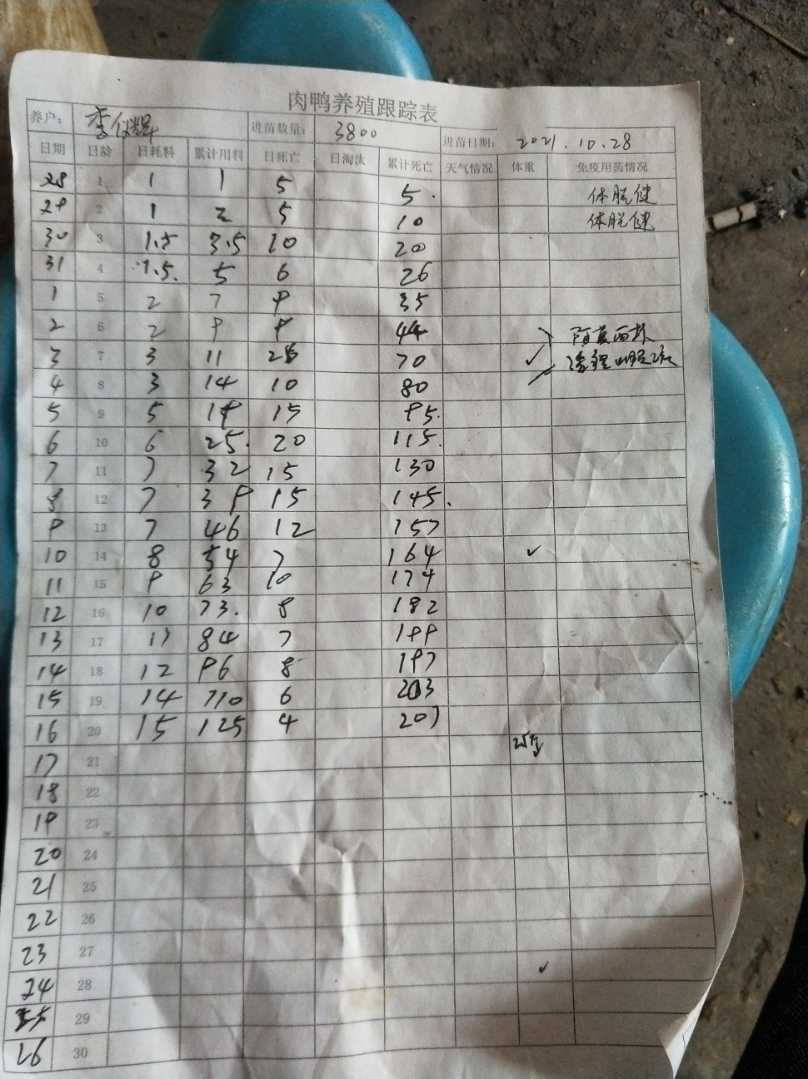 肉鸭养殖跟踪表
养户： 李 进苗数量： 3800 进苗日期： 2021.10.28
日期 日龄 日耗料 累计用料 日死亡 日淘汰 累计死亡 天气情况 体重 免疫用药情况
28 1 1 1 5 5. 体脱健
29 2 1 2 5 10 体脱健
30 3 1.5 3.5 10 20
31 4 1.5. 5 6 26
1 5 2 7 9 35
2 6 2 9 9 44
3 7 3 11 26 70 ✓
4 8 3 14 10 80
5 9 5 19 15 95.
6 10 6 25. 20 115.
7 11 7 32 15 130
8 12 7 39 15 145.
9 13 7 46 12 157
10 14 8 54 7 164 ✓
11 15 9 63 10 174
12 16 10 73. 8 182
13 17 11 84 7 189
14 18 12 96 8 197
15 19 14 110 6 203
16 20 15 125 4 207
17 21
18 22
19 23
20 24
21 25
22 26
23 27
24 28 ✓
25 29
26 30